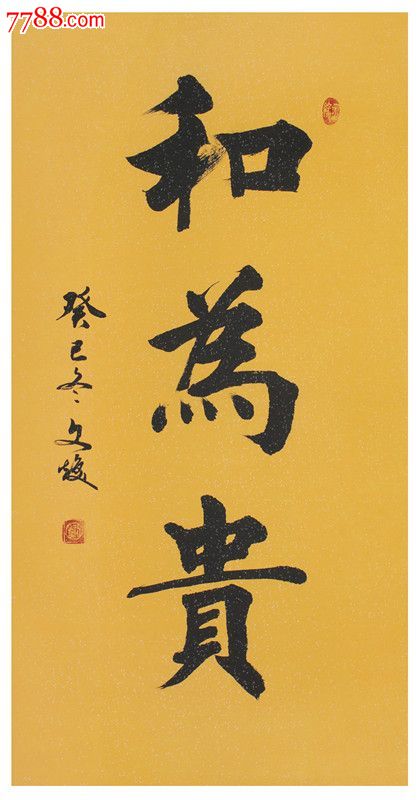 7788.com
和為貴
癸巳冬文